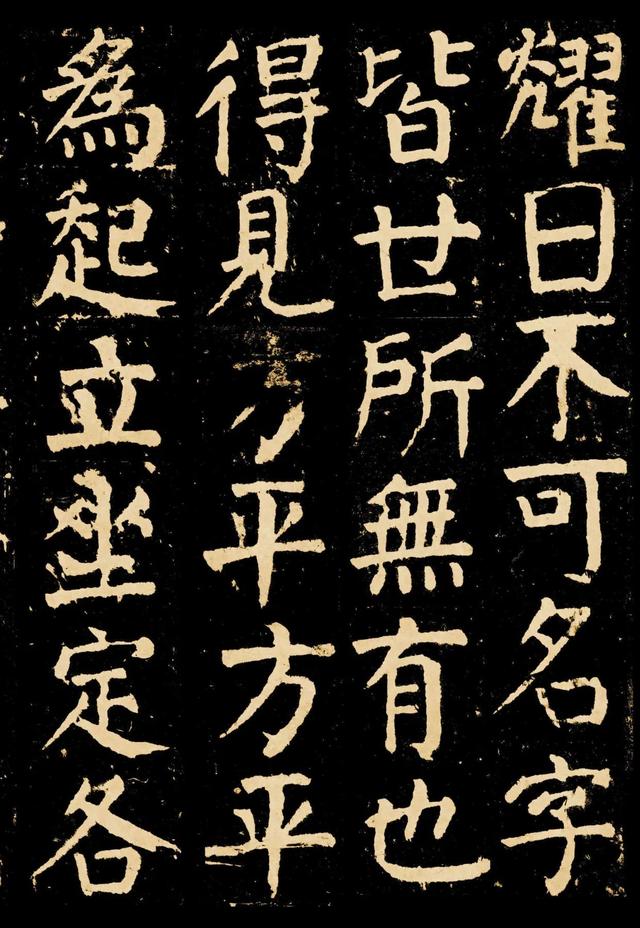 耀日不可名字
皆世所無有也
得見方平方平
為起立坐定各